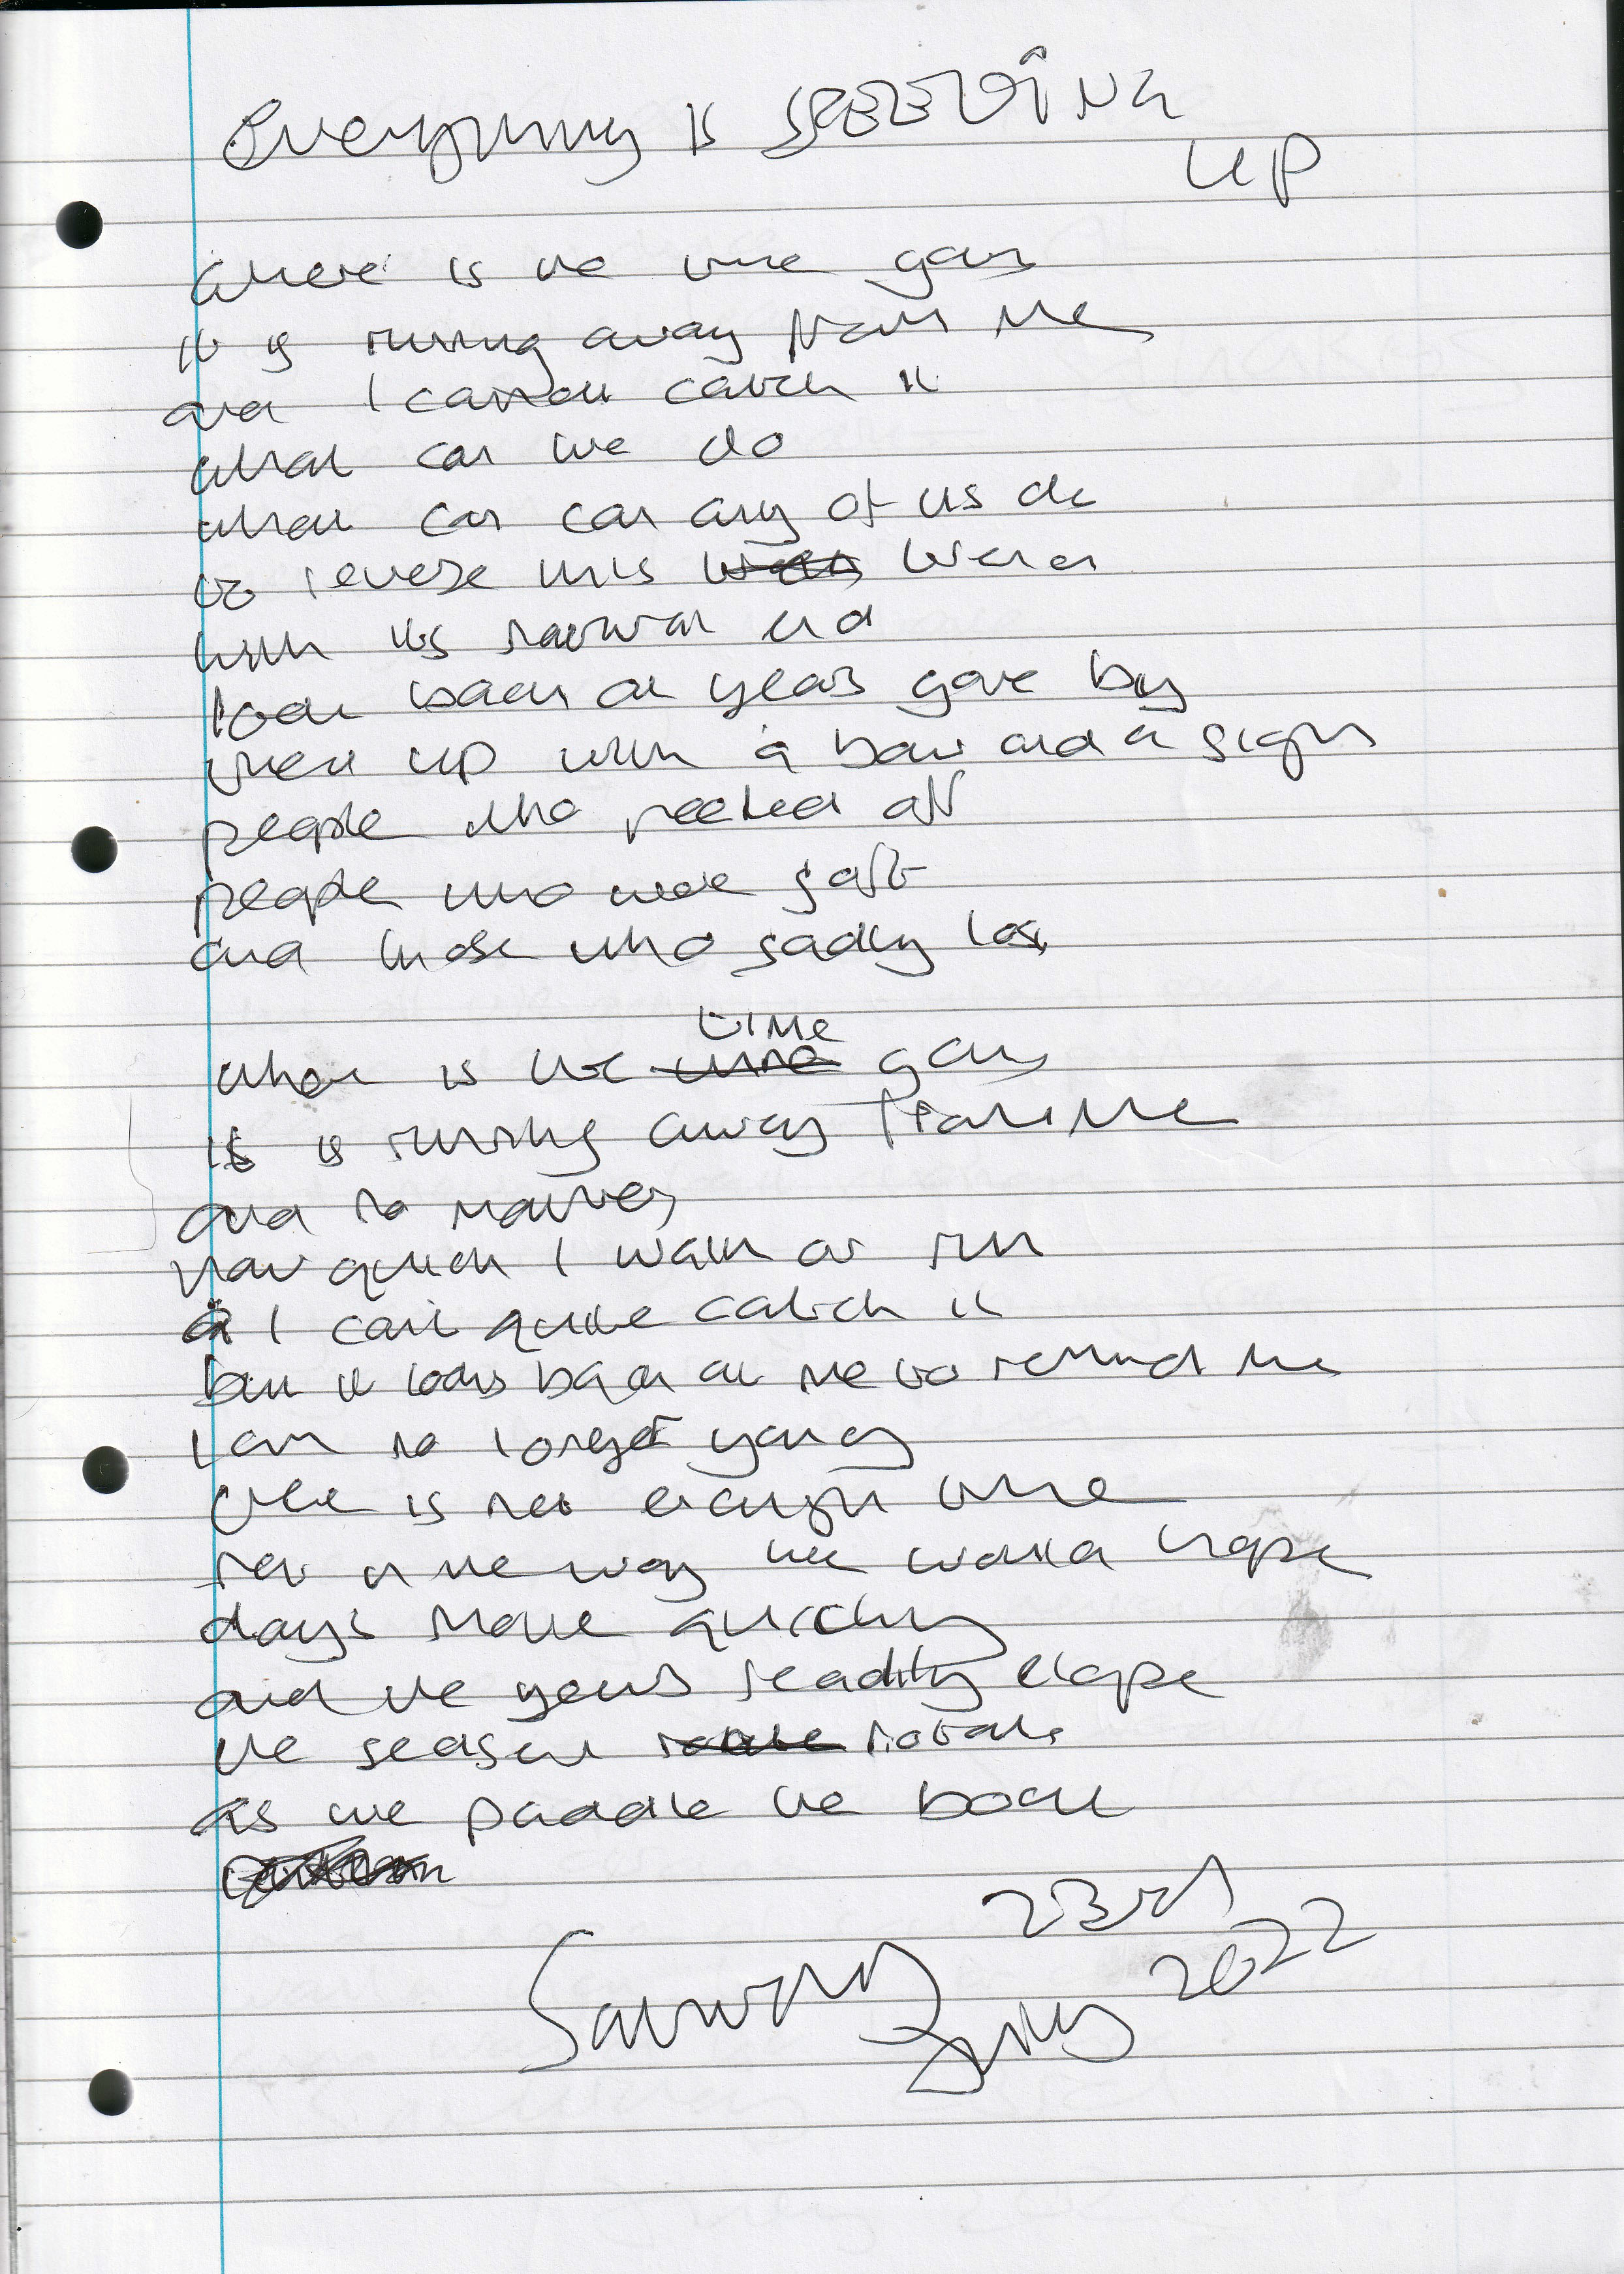 everything is SPEEDING
UP
where is the time going
it is running away from me
and I cannot catch it
what can we do
what can can any of us do
to reverse this trend
with its natural end
look back at years gone by
tied up with a bow and a sigh
people who
people who were soft
and those who sadly lost
time
where is the time going
it is running away from me
and no matter
how quick I walk or run
I can't quite catch it
but it looks back at me to remind me
I am no longer young
there is not enough time
not in the way we would hope
days move quickly
and the years steadily elapse
the season rotate rotate
as we paddle the boat
23rd
Saturday
July 2022